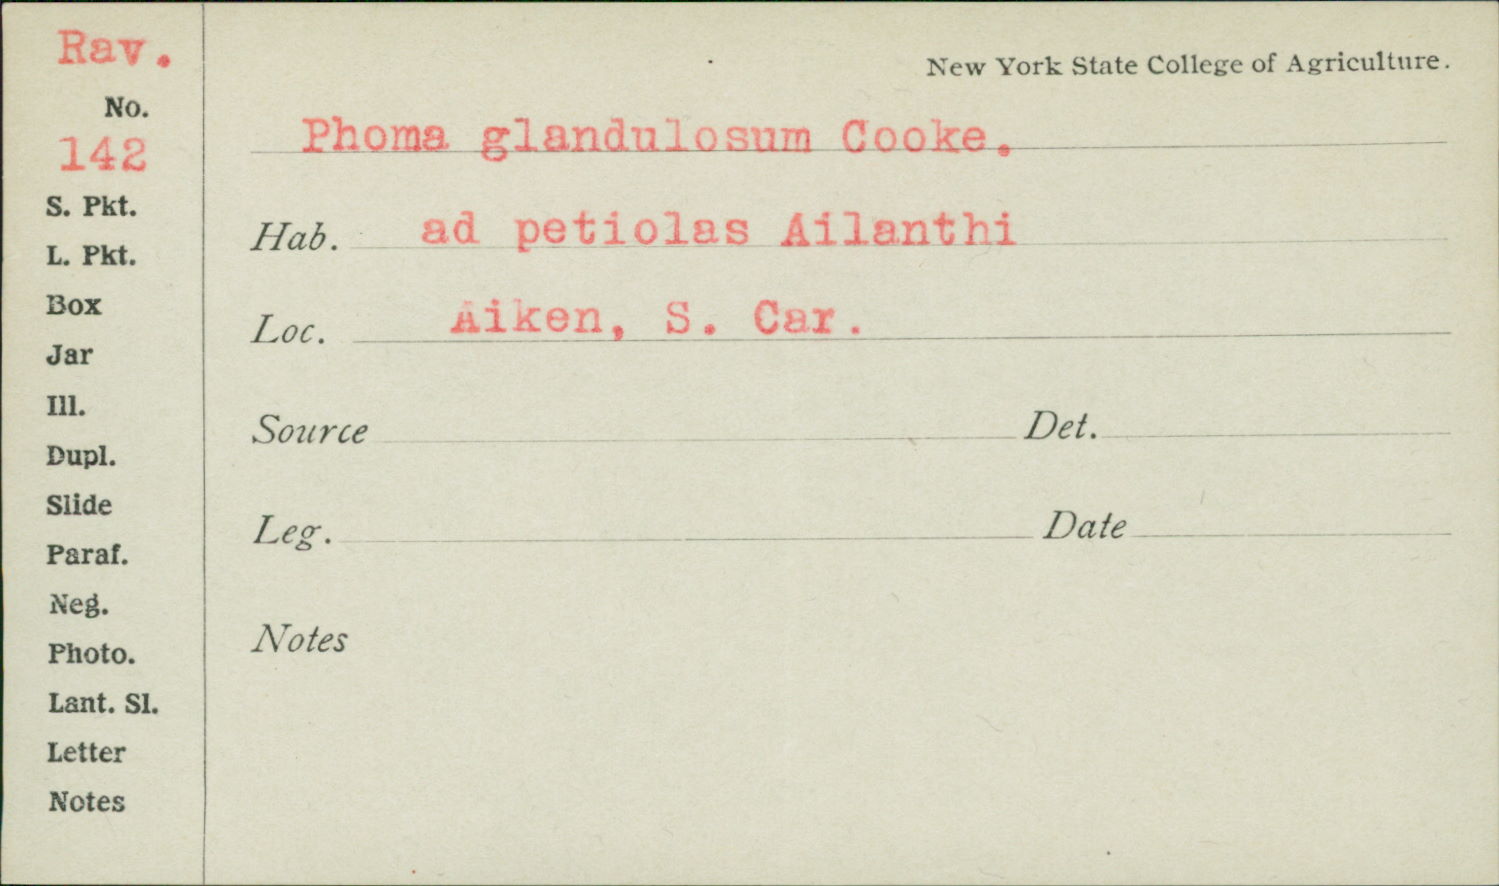 Rav.
No.
142
S. Pkt.
L. Pkt.
Box
Jar
Ill.
Dupl.
Slide
Paraf.
Neg.
Photo.
Lant. Sl.
Letter
Notes
New York State College of Agriculture.
Phoma glandulosum Cooke.
Hab. ad petiolas Ailanthi
Loc. Aiken, S. Car.
Source Det.
Leg. Date
Notes